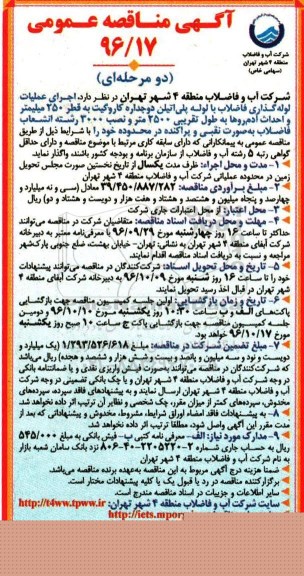 آگهی مناقصه عمومی
۹۶/۱۷
(دو مرحله‌ای)
شرکت آب و فاضلاب
منطقه ۴ شهر تهران
(سهامی خاص)
شرکت آب و فاضلاب منطقه ۴ شهر تهران در نظر دارد، اجرای عملیات
لوله‌گذاری فاضلاب با لوله پلی‌اتیلن دوجداره کاروگیت به قطر ۲۵۰ میلیمتر
و احداث آدم‌روها به طول تقریبی ۲۵۰۰ متر و نصب ۳۰۰۰ رشته انشعاب
فاضلاب به‌صورت نقبی و پراکنده در محدوده خود را با شرایط ذیل از طریق
مناقصه عمومی به پیمانکارانی که دارای سابقه کاری مرتبط با موضوع مناقصه و دارای حداقل
گواهی رتبه ۵ رشته آب و فاضلاب از سازمان برنامه و بودجه کشور باشند، واگذار نماید.
۱- مدت و محل اجراء: ظرف مدت یکسال از تاریخ نخستین صورت مجلس تحویل
زمین در محدوده عملیاتی شرکت آب و فاضلاب منطقه ۴ شهر تهران
۲- مبلغ برآوردی مناقصه: ۳۹/۴۵۰/۸۸۷/۲۸۷ معادل (سی و نه میلیارد و
چهارصد و پنجاه میلیون و هشتصد و هشتاد و هفت هزار و دویست و هشتاد و هفت) ریال
۳- محل اعتبار: از محل اعتبارات جاری شرکت
۴- مهلت و محل دریافت اسناد مناقصه: متقاضیان شرکت در مناقصه می‌توانند
حداکثر تا ساعت ۱۶ روز چهارشنبه مورخ ۹۶/۰۹/۲۹ با معرفی‌نامه معتبر به دبیرخانه
شرکت آبفای منطقه ۴ شهر تهران به نشانی: تهران- خیابان بهشت، ضلع جنوبی پارک‌شهر
مراجعه و نسبت به دریافت اسناد مناقصه اقدام نمایند.
۵- تاریخ و محل تحویل اسناد: شرکت‌کنندگان در مناقصه می‌توانند پیشنهادات
خود را تا ساعت ۱۶ روز شنبه مورخ ۹۶/۱۰/۰۹ به دبیرخانه شرکت آبفای منطقه ۴
شهر تهران در قبال اخذ رسید تحویل نمایند.
۶- تاریخ و زمان بازگشایی: اولین جلسه کمیسیون مناقصه جهت بازگشایی
پاکت‌های الف و ب ساعت ۱۰:۳۰ روز یکشنبه مورخ ۹۶/۱۰/۱۰ و دومین
جلسه کمیسیون مناقصه جهت بازگشایی پاکت ج ساعت ۱۰ صبح روز یکشنبه
مورخ ۹۶/۱۰/۱۷ خواهد بود.
۷- مبلغ تضمین شرکت در مناقصه: مبلغ ۱/۲۹۳/۵۲۶/۶۱۸ (یک میلیارد و
دویست و نود و سه میلیون و پانصد و بیست و شش هزار و ششصد و هجده) ریال می‌باشد
که شرکت‌کنندگان در مناقصه می‌توانند به‌صورت فیش واریزی نقدی و یا ضمانتنامه بانکی
در وجه شرکت آب و فاضلاب منطقه ۴ شهر تهران و یا چک بانکی تضمینی در وجه شرکت
آب و فاضلاب منطقه ۴ شهر تهران ارسال نمایند و به پیشنهادهای فاقد سپرده، سپرده‌های
مخدوش، سپرده‌های کمتر از میزان مقرر، چک شخصی و نظایر آن ترتیب اثر داده نخواهد شد.
۸- به پیشنهادات فاقد امضاء اوراق شرایط، مشروط، مخدوش و پیشنهاداتی که بعد از
مدت مقرر این آگهی واصل شود، مطلقا ترتیب اثر داده نخواهد شد.
۹- مدارک مورد نیاز: الف- معرفی نامه کتبی ب- فیش بانکی به مبلغ ۵۴۵/۰۰۰
ریال به حساب جاری شماره نزد بانک سامان شعبه بازار
به نام شرکت آب و فاضلاب منطقه ۴ شهر تهران
ضمنا هزینه درج آگهی مربوط به این مناقصه به‌عهده برنده مناقصه می‌باشد.
برگزارکننده مناقصه در رد یا قبول یک یا کلیه پیشنهادات مختار است.
سایر اطلاعات و جزئیات در اسناد مناقصه مندرج است.
سایت شرکت آب و فاضلاب منطقه ۴ شهر تهران: http://t4ww.tpww.ir
http://iets.mpor